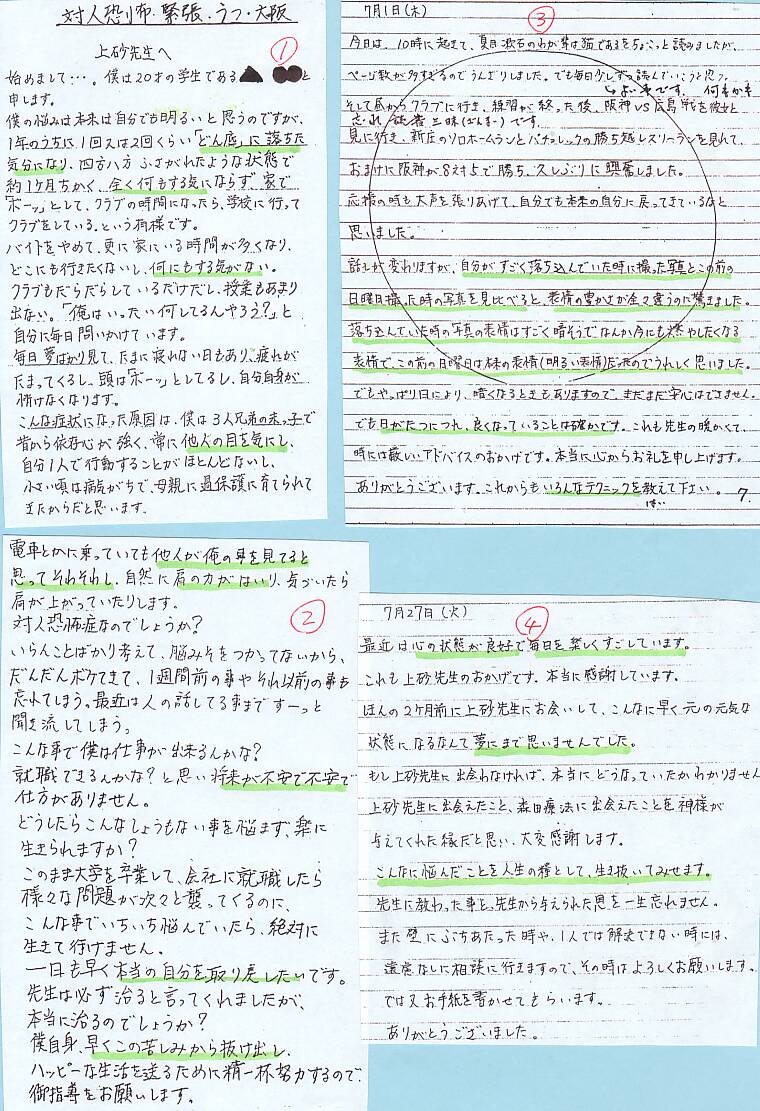 対人恐怖・緊張・うつ・大阪
①
上砂先生へ
始めまして…。僕は20才の学生である▲ ●●と
申します。
僕の悩みは本来は自分でも明るいと思うのですが、
1年のうちに1回又は2回くらい「どん底」に落ちた
気分になり、四方八方ふさがれたような状態で
約1ヶ月ちかく、全く何もする気にならず、家で
「ボーッ」として、クラブの時間になったら、学校に行って
クラブをしている。という有様です。
バイトをやめて、更に家にいる時間が多くなり、
どこにも行きたくないし、何にもする気がない。
クラブもだらだらしているだけだし、授業もあまり
出ない。「俺はいったい何してるんやろう?」と
自分に毎日問いかけています。
毎日夢ばかり見て、たまに寝れない日もあり、疲れが
たまってくるし、頭は「ボーッ」としてるし、自分自身が
情けなくなります。
こんな症状になった原因は、僕は3人兄弟の末っ子で
昔から依存心が強く、常に他人の目を気にし、
自分1人で行動することがほとんどないし、
小さい頃は病気がちで、母親に過保護に育てられて
きたからだと思います。
②
電車とかに乗っていても他人が俺の事を見てると
思ってそわそわし、自然に肩の力がはいり、気づいたら
肩が上がっていたりします。
対人恐怖症なのでしょうか?
いらんことばかり考えて、脳みそをつかってないから、
だんだんボケてきて、1週間前の事やそれ以前の事も
忘れてしまう。最近は人の話してる事まですーっと
聞き流してしまう。
こんな事で僕は仕事が出来るんかな?
就職できるんかな?と思い将来が不安で不安で
仕方がありません。
どうしたらこんなしょうもない事を悩まず、楽に
生きられますか?
このまま大学を卒業して、会社に就職したら
様々な問題が次々と襲ってくるのに、
こんな事でいちいち悩んでいたら、絶対に
生きて行けません。
一日も早く本当の自分を取り戻したいです。
先生は必ず治ると言ってくれましたが、
本当に治るのでしょうか?
僕自身、早くこの苦しみから抜け出し、
ハッピーな生活を送るために精一杯努力するので、
御指導をお願いします。
7月1日(木)
③
今日は、10時に起きて、夏目漱石のわが輩は猫であるをちょこっと読みましたが、
ページ数が多すぎるのでうんざりしました。でも毎日少しずつ読んでいこうと思う。
よい事です。 何もかも
そして昼からクラブに行き、練習が終った後、阪神VS広島戦を彼女と
忘れ 読書三昧(ざんまい)です。
見に行き、新庄のソロホームランとバチョレックの勝ち越しスリーランを見れて、
おまけに阪神が8対5で勝ち、久しぶりに興奮しました。
応援の時も大声を張りあげて、自分でも本来の自分に戻ってきているなと
思いました。
話しが変わりますが、自分がすごく落ち込んでいた時に撮った写真とこの前の
日曜日撮った時の写真を見比べると、表情の豊かさが全々違うのに驚きました。
落ち込んでいた時の写真の表情はすごく暗そうで、なんか今にも燃やしたくなる
表情で、この前の日曜日は本来の表情(明るい表情)だったのでうれしく思いました。
でもやっぱり日により、暗くなるときもありますので、まだまだ安心はできません。
でも日がたつにつれ、良くなっていることは確かです。これも先生の暖かくて、
時には厳しいアドバイスのおかげです。本当に心からお礼を申し上げます。
ありがとうございます。これからもいろんなテクニックを教えて下さい。 7.
はい
7月27日(火)
④
最近は心の状態が良好で毎日を楽しくすごしています。
これも上砂先生のおかげです。本当に感謝しています。
ほんの2ヶ月前に上砂先生にお会いして、こんなに早く元の元気な
状態になるなんて夢にまで思いませんでした。
もし上砂先生に出会わなければ、本当にどうなっていたかわかりません
上砂先生に出会えたこと、森田療法に出会えたことを神様が
与えてくれた縁だと思い、大変感謝します。
こんなに悩んだことを人生の糧として、生き抜いてみせます。
先生に教わった事と、先生から与えられた恩を一生忘れません。
また壁にぶちあたった時や、1人では解決できない時には、
遠慮なしに相談に行きますので、その時はよろしくお願いします。
では又お手紙を書かせてもらいます。
ありがとうございました。